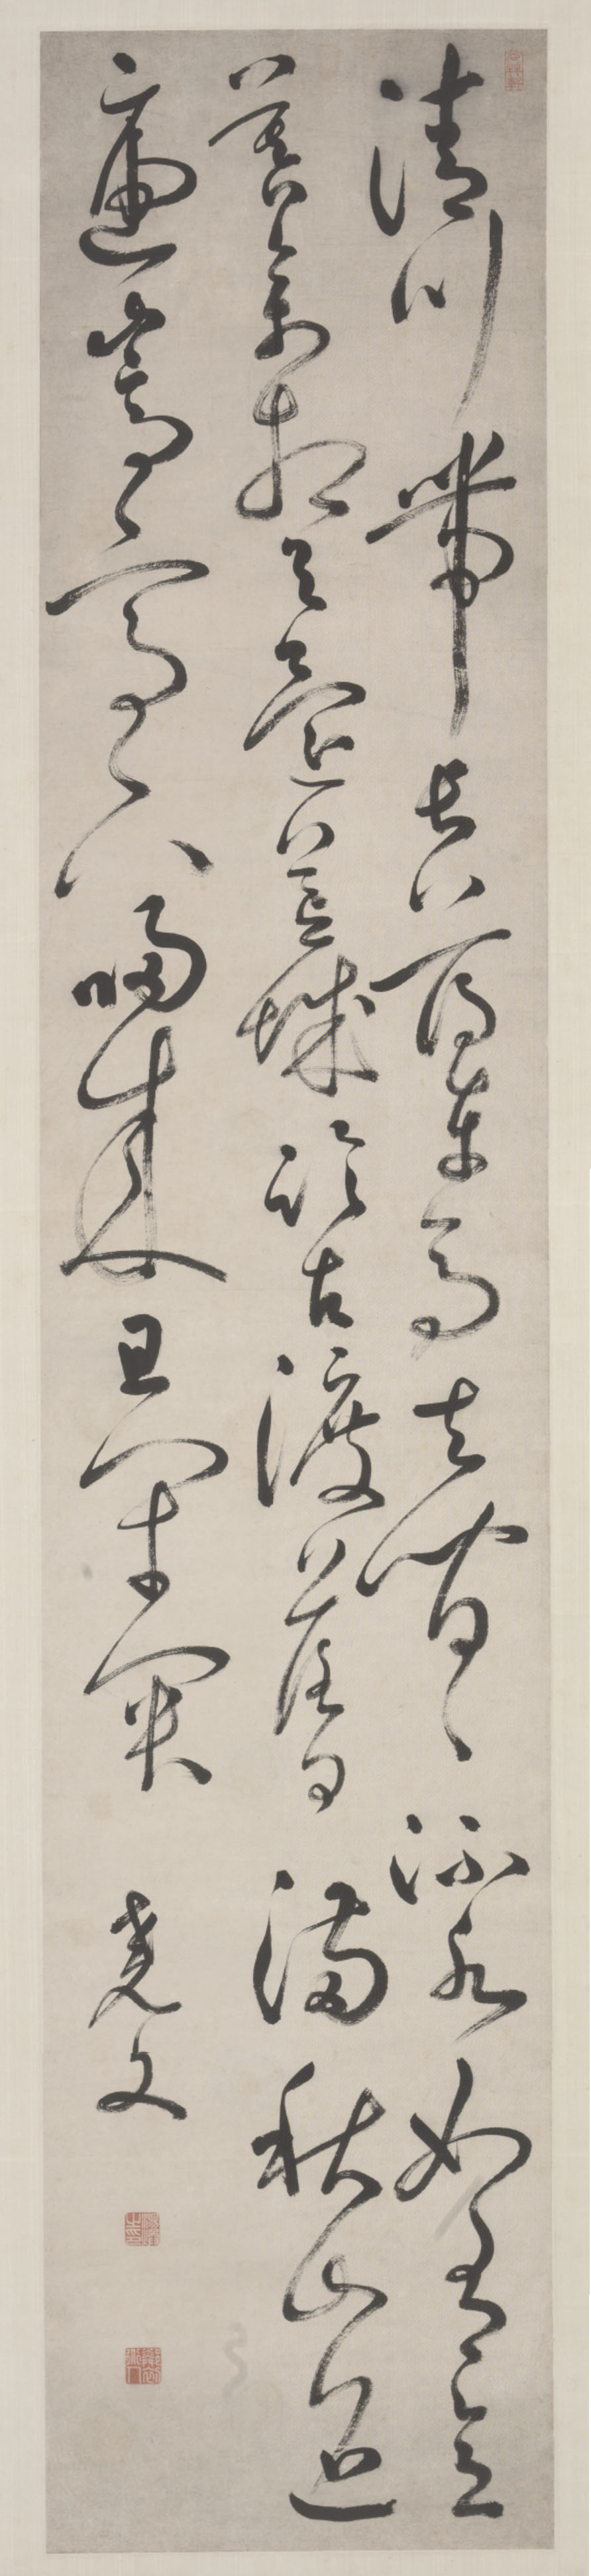 清川帶長薄車馬去閒〻流水如有意
暮禽相與還荒城臨古渡落日滿秋山迢
遞嵩高下歸來且閉關 堯文